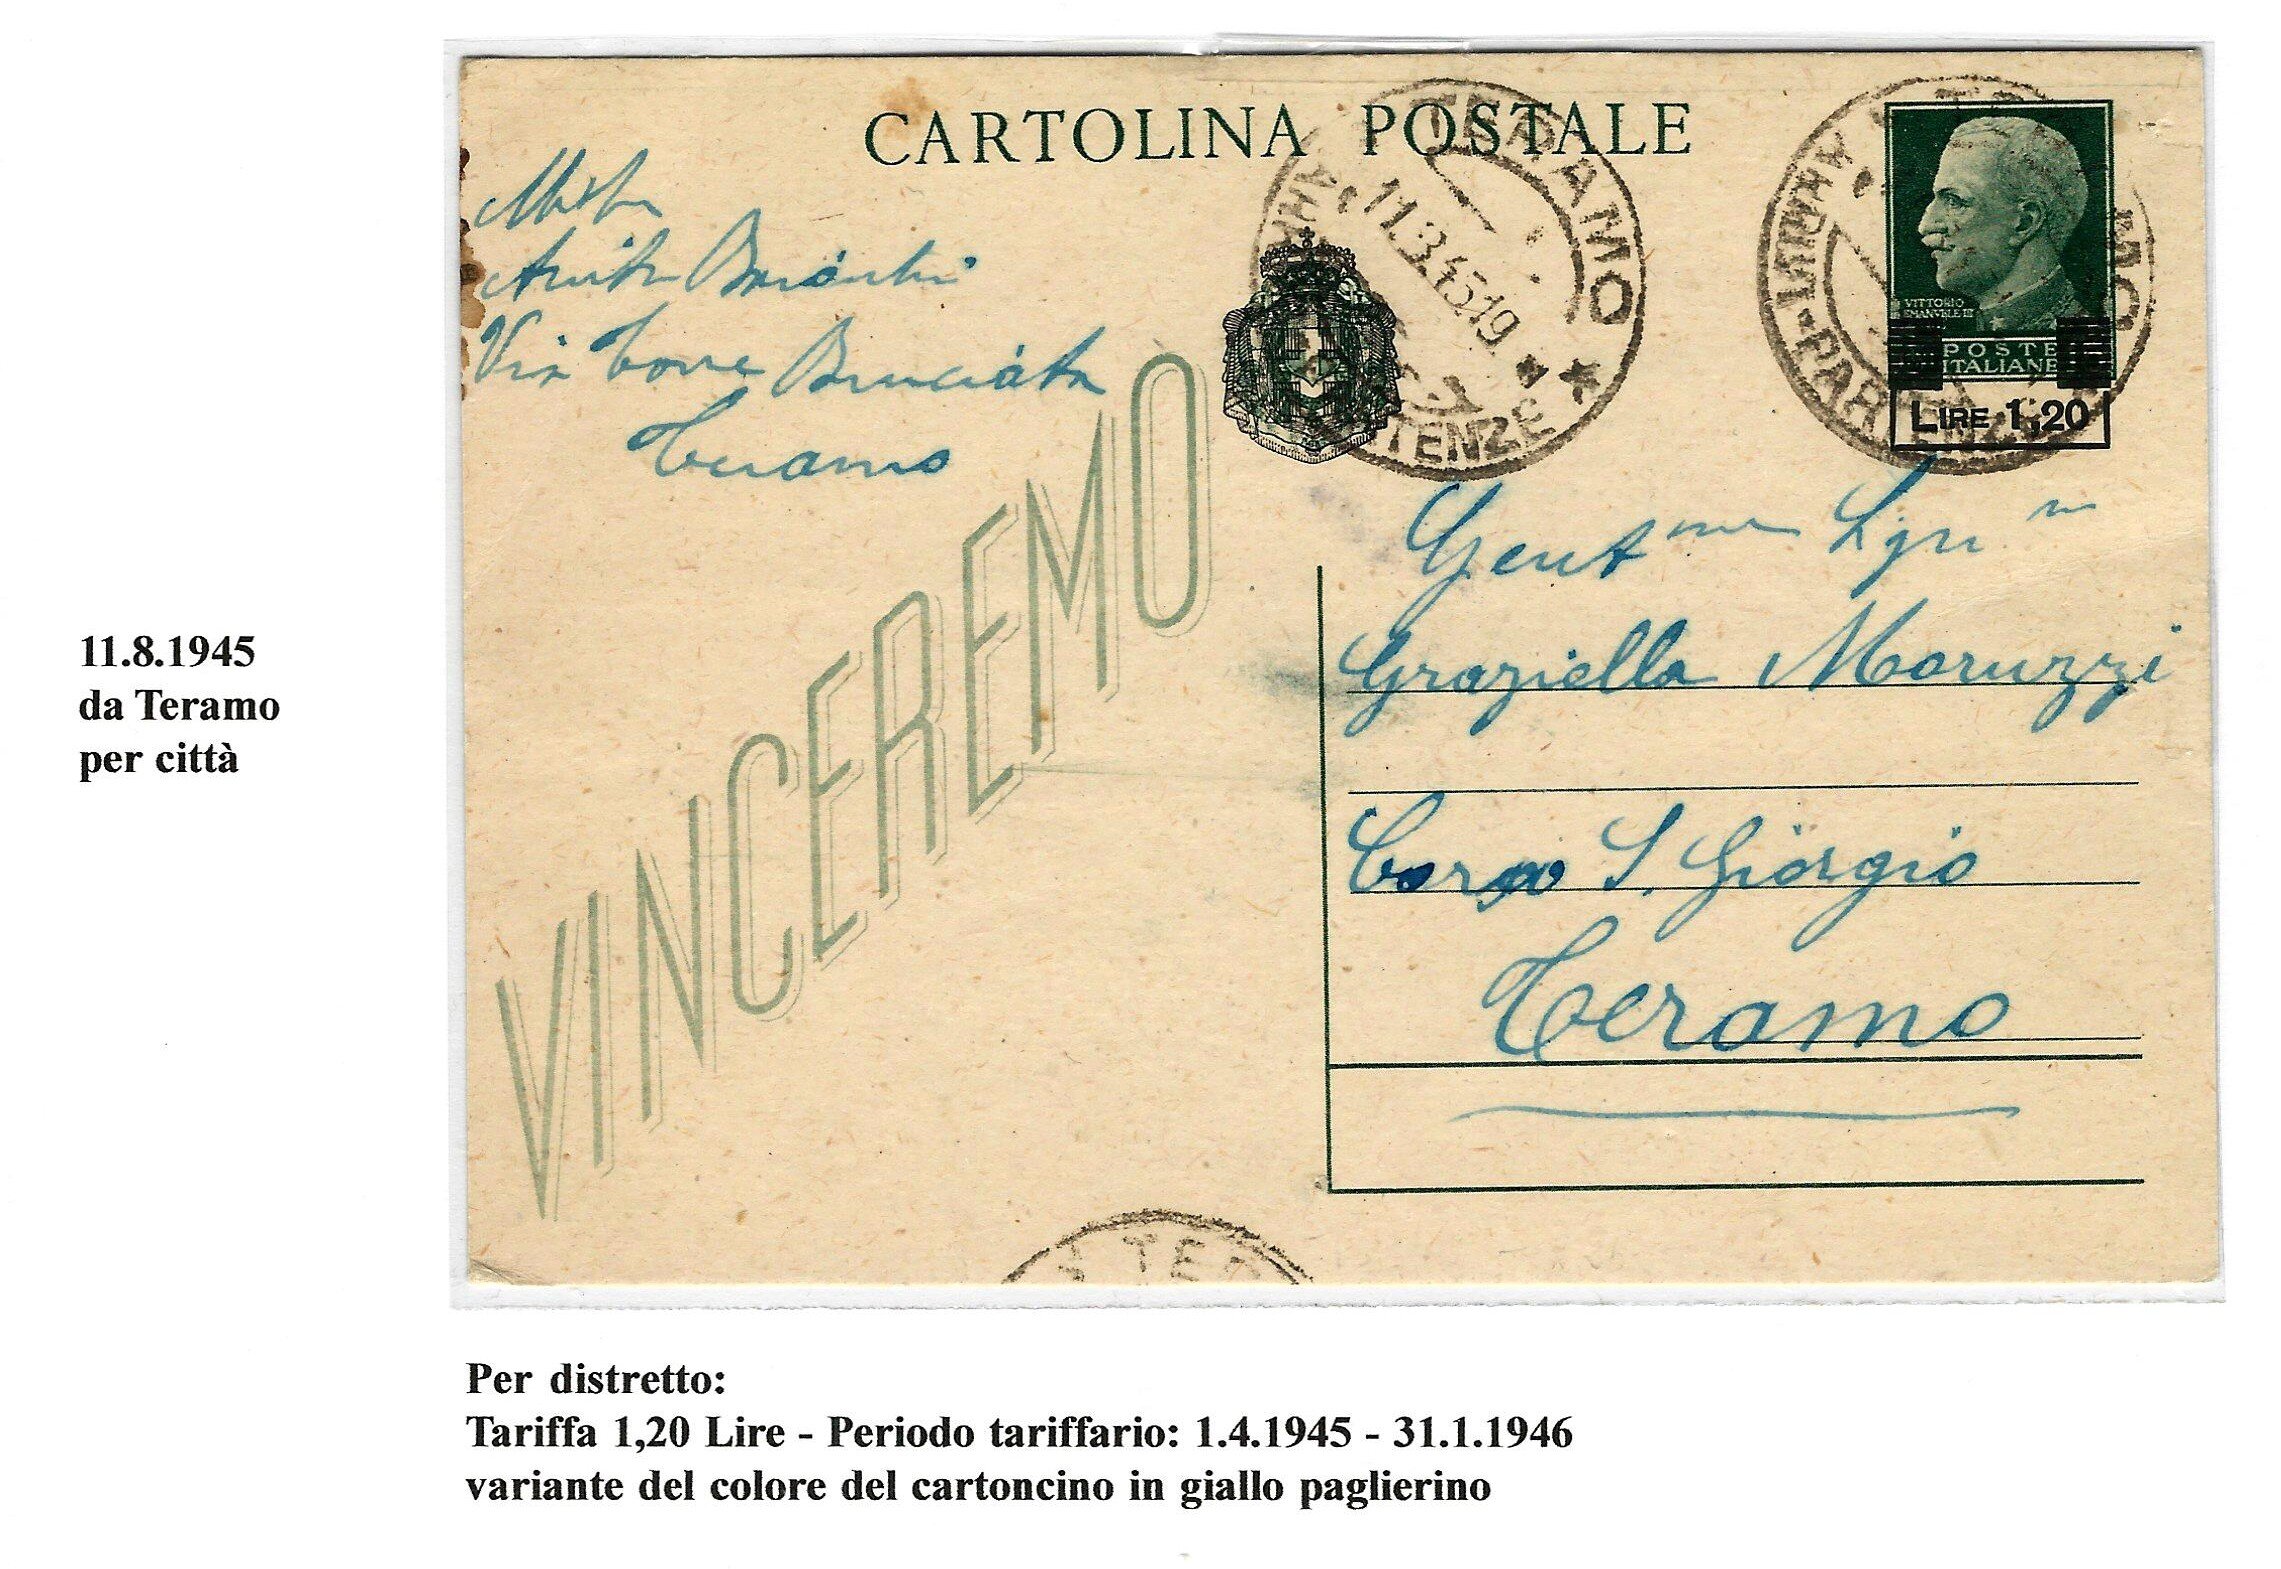 CARTOLINA POSTALE
Mitt.
Anita Brianti
Via Torre Bruciata
Teramo
TERAMO
11.8.45.19
PARTENZE
TERAMO
PARTENZE
VITTORIO
EMANVELE III
POSTE
ITALIANE
LIRE 1,20
VINCEREMO
Gent
Graziella Maruzzi
Corso S. Giorgio
Teramo
TER
11.8.1945
da Teramo
per città
Per distretto:
Tariffa 1,20 Lire - Periodo tariffario: 1.4.1945 - 31.1.1946
variante del colore del cartoncino in giallo paglierino